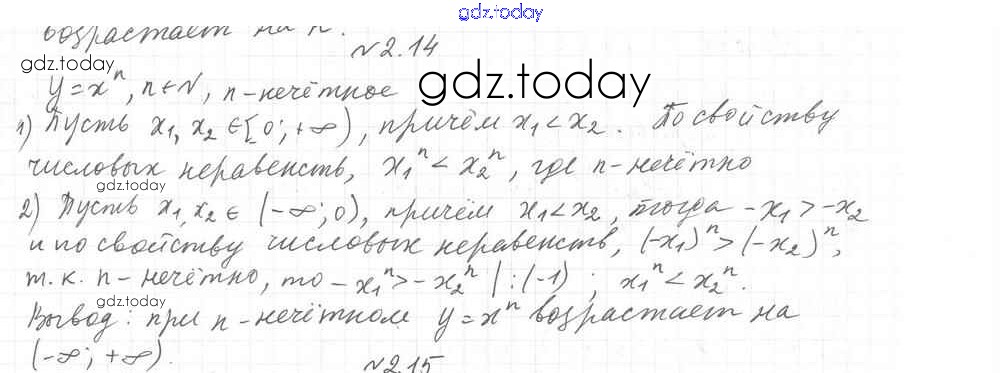 gdz.today
возрастает на R.
№2.14
gdz.today
y=xⁿ, n∈N, n-нечётное gdz.today
1) Пусть x₁, x₂ ∈ [0; +∞), причём x₁ < x₂. По свойству
числовых неравенств, x₁ⁿ < x₂ⁿ, где n-нечётно
gdz.today
2) Пусть x₁, x₂ ∈ (-∞; 0), причём x₁ < x₂, тогда -x₁ > -x₂
и по свойству числовых неравенств, (-x₁)ⁿ > (-x₂)ⁿ,
т.к. n-нечётно, то -x₁ⁿ > -x₂ⁿ |:(-1) ; x₁ⁿ < x₂ⁿ.
gdz.today
Вывод: при n-нечётном y=xⁿ возрастает на
(-∞; +∞).
gdz.today
№2.15